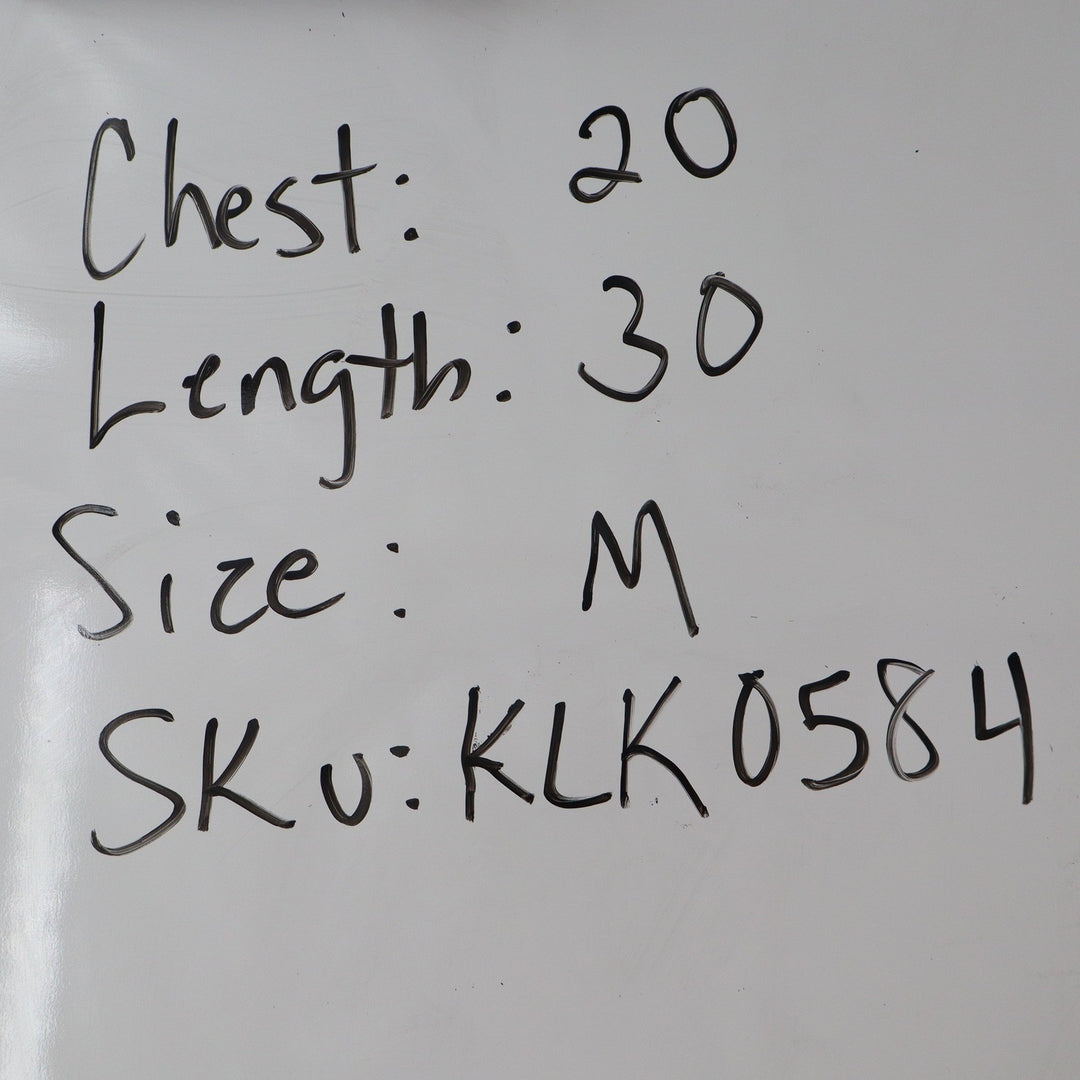 Chest: 20
Length: 30
Size: M
SKU: KLK0584